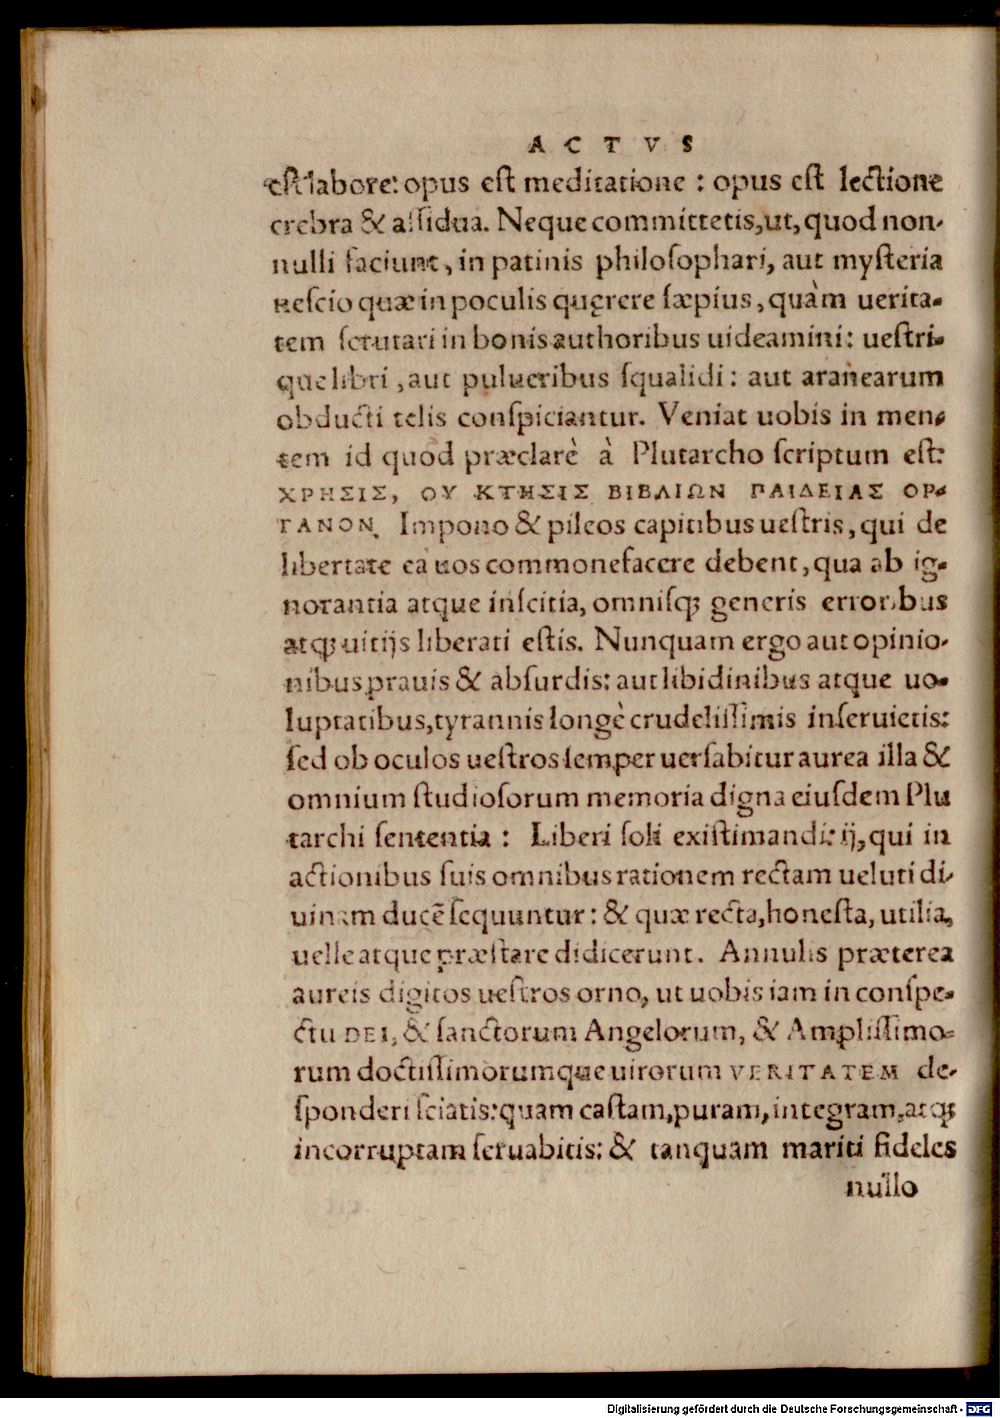 ACTVS
est labore: opus est meditatione : opus est lectione
crebra & assidua. Neque committetis,ut, quod non-
nulli faciunt, in patinis philosophari, aut mysteria
nescio quæ in poculis quęrere sæpius, quàm uerita-
tem scrutari in bonis authoribus uideamini: uestri-
que libri, aut pulueribus squalidi: aut aranearum
obducti telis conspiciantur. Veniat uobis in men-
tem id quod præclarè à Plutarcho scriptum est:
ΧΡΗΣΙΣ, ΟΥ ΚΤΗΣΙΣ ΒΙΒΛΙΩΝ ΠΑΙΔΕΙΑΣ ΟΡ-
ΓΑΝΟΝ. Impono & pileos capitibus uestris, qui de
libertate ea uos commonefacere debent, qua ab ig-
norantia atque inscitia, omnisq; generis erroribus
atq; uitijs liberati estis. Nunquam ergo aut opinio-
nibus prauis & absurdis: aut libidinibus atque uo-
luptatibus, tyrannis longè crudelissimis inseruietis:
sed ob oculos uestros semper uersabitur aurea illa &
omnium studiosorum memoria digna eiusdem Plu
tarchi sententia : Liberi soli existimandi: ij, qui in
actionibus suis omnibus rationem rectam ueluti di-
uinam ducē sequuntur: & quæ recta, honesta, utilia,
uelle atque præstare didicerunt. Annulis præterea
aureis digitos uestros orno, ut uobis iam in conspe-
ctu DEI, & sanctorum Angelorum, & Amplissimo-
rum doctissimorumque uirorum VERITATEM de-
sponderi sciatis: quam castam, puram, integram, atq;
incorruptam seruabitis: & tanquam mariti fideles
nullo
Digitalisierung gefördert durch die Deutsche Forschungsgemeinschaft - DFG